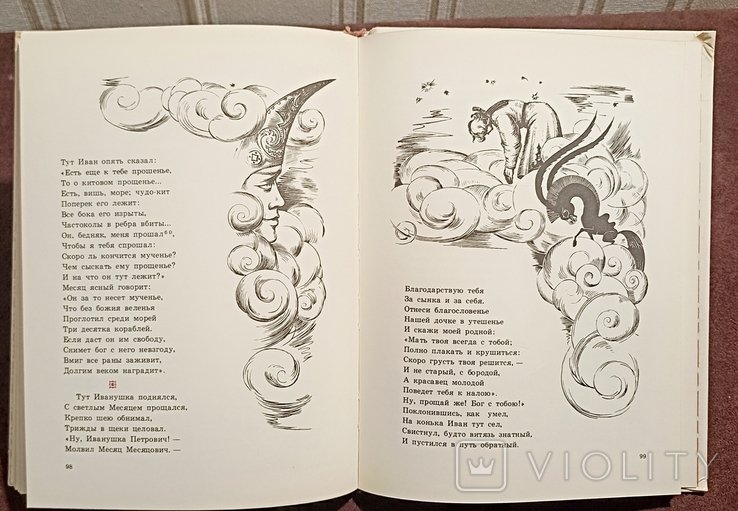 Тут Иван опять сказал:
«Есть еще к тебе прошенье,
То о китовом прощенье...
Есть, вишь, море; чудо-кит
Поперек его лежит:
Все бока его изрыты,
Частоколы в ребра вбиты...
Он, бедняк, меня прошал⁶⁰,
Чтобы я тебя спрошал:
Скоро ль кончится мученье?
Чем сыскать ему прощенье?
И на что он тут лежит?»
Месяц ясный говорит:
«Он за то несет мученье,
Что без божия веленья
Проглотил среди морей
Три десятка кораблей.
Если даст он им свободу,
Снимет бог с него невзгоду,
Вмиг все раны заживит,
Долгим веком наградит».
Тут Иванушка поднялся,
С светлым Месяцем прощался,
Крепко шею обнимал,
Трижды в щеки целовал.
«Ну, Иванушка Петрович! —
Молвил Месяц Месяцович. —
98
Благодарствую тебя
За сынка и за себя.
Отнеси благословенье
Нашей дочке в утешенье
И скажи моей родной:
«Мать твоя всегда с тобой;
Полно плакать и крушиться:
Скоро грусть твоя решится, —
И не старый, с бородой,
А красавец молодой
Поведет тебя к налою».
Ну, прощай же! Бог с тобою!»
Поклонившись, как умел,
На конька Иван тут сел,
Свистнул, будто витязь знатный,
И пустился в путь обратный.
99
VIOLITY